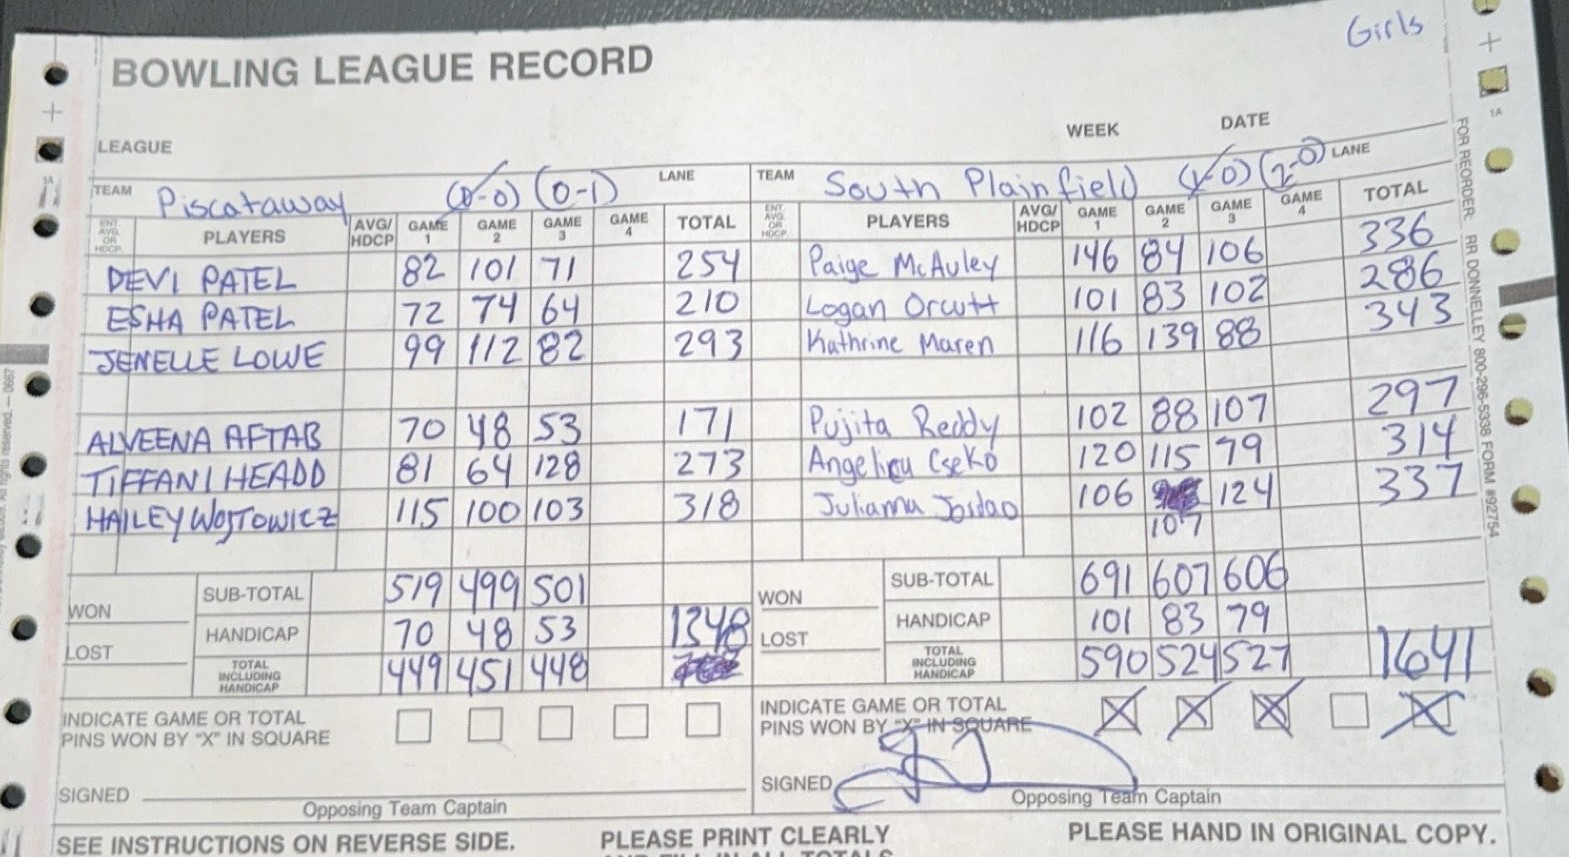 Girls
BOWLING LEAGUE RECORD
LEAGUE WEEK DATE
TEAM Piscataway (0-0) (0-1) LANE
ENT. AVG. OR HDCP. PLAYERS AVG/HDCP GAME 1 GAME 2 GAME 3 GAME 4 TOTAL
DEVI PATEL 82 101 71 254
ESHA PATEL 72 74 64 210
JENELLE LOWE 99 112 82 293
ALVEENA AFTAB 70 48 53 171
TIFFANI HEADD 81 64 128 273
HAILEY WOJTOWICZ 115 100 103 318
SUB-TOTAL 519 499 501
WON
HANDICAP 70 48 53 1348
LOST
TOTAL INCLUDING HANDICAP 449 451 448
INDICATE GAME OR TOTAL
PINS WON BY "X" IN SQUARE
SIGNED
Opposing Team Captain
TEAM South Plainfield (1-0) (2-0) LANE
ENT. AVG. OR HDCP. PLAYERS AVG/HDCP GAME 1 GAME 2 GAME 3 GAME 4 TOTAL
Paige McAuley 146 84 106 336
Logan Orcutt 101 83 102 286
Kathrine Maren 116 139 88 343
Pujita Reddy 102 88 107 297
Angelica Cseko 120 115 79 314
Julianna Jordao 106 124 337
107
SUB-TOTAL 691 607 606
WON
HANDICAP 101 83 79
LOST
TOTAL INCLUDING HANDICAP 590 524 527 1641
INDICATE GAME OR TOTAL
PINS WON BY "X" IN SQUARE
SIGNED
Opposing Team Captain
SEE INSTRUCTIONS ON REVERSE SIDE. PLEASE PRINT CLEARLY PLEASE HAND IN ORIGINAL COPY.
AND FILL IN ALL TOTALS
FOR REORDER: RR DONNELLEY 800-296-5338 FORM #92754
1A
1A
All rights reserved. — 0667